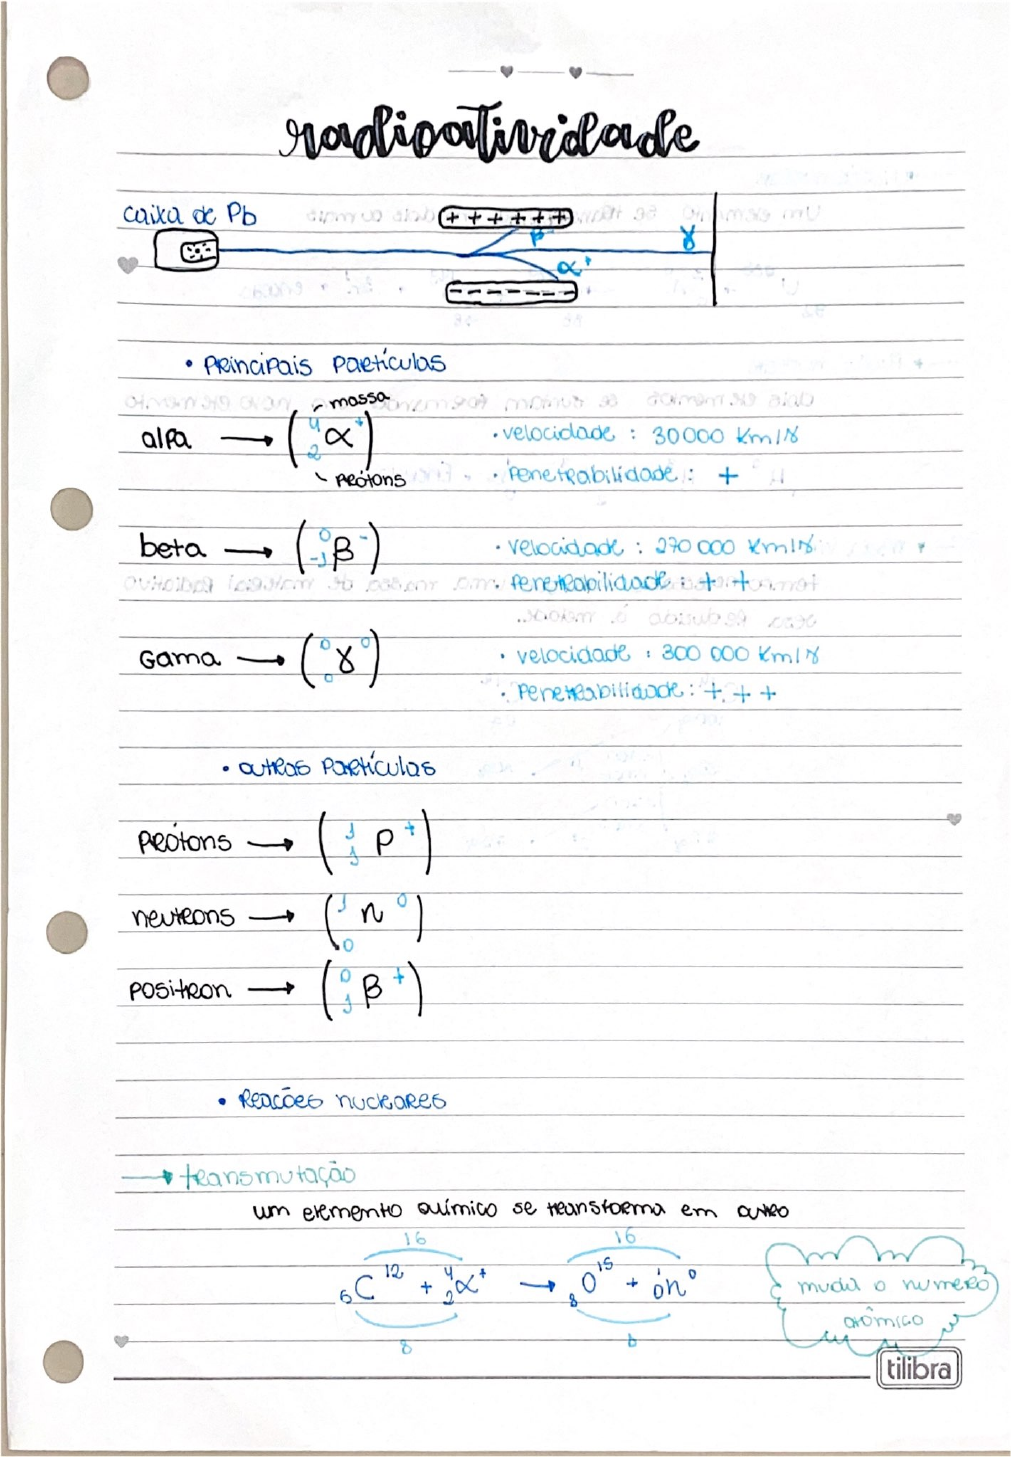 radioatividade
caixa de Pb
+ + + + + +
β⁻
γ
α⁺
- - - - - -
• Principais Partículas
massa
alfa → (⁴₂α⁺) • velocidade : 30000 Km/s
Prótons • Penetrabilidade : +
beta → (⁰₋₁β⁻) • velocidade : 270 000 Km/s
• Penetrabilidade : + +
Gama → (⁰₀γ⁰) • velocidade : 300 000 Km/s
• Penetrabilidade : + + +
• outras Partículas
Prótons → (¹₁P⁺)
neutrons → (¹₀n⁰)
positron → (⁰₁β⁺)
• Reações nucleares
→ transmutação
um elemento químico se transforma em outro
16 16
₆C¹² + ⁴₂α⁺ → ₈O¹⁵ + ¹₀n⁰
8 8
muda o numero
atômico
tilibra